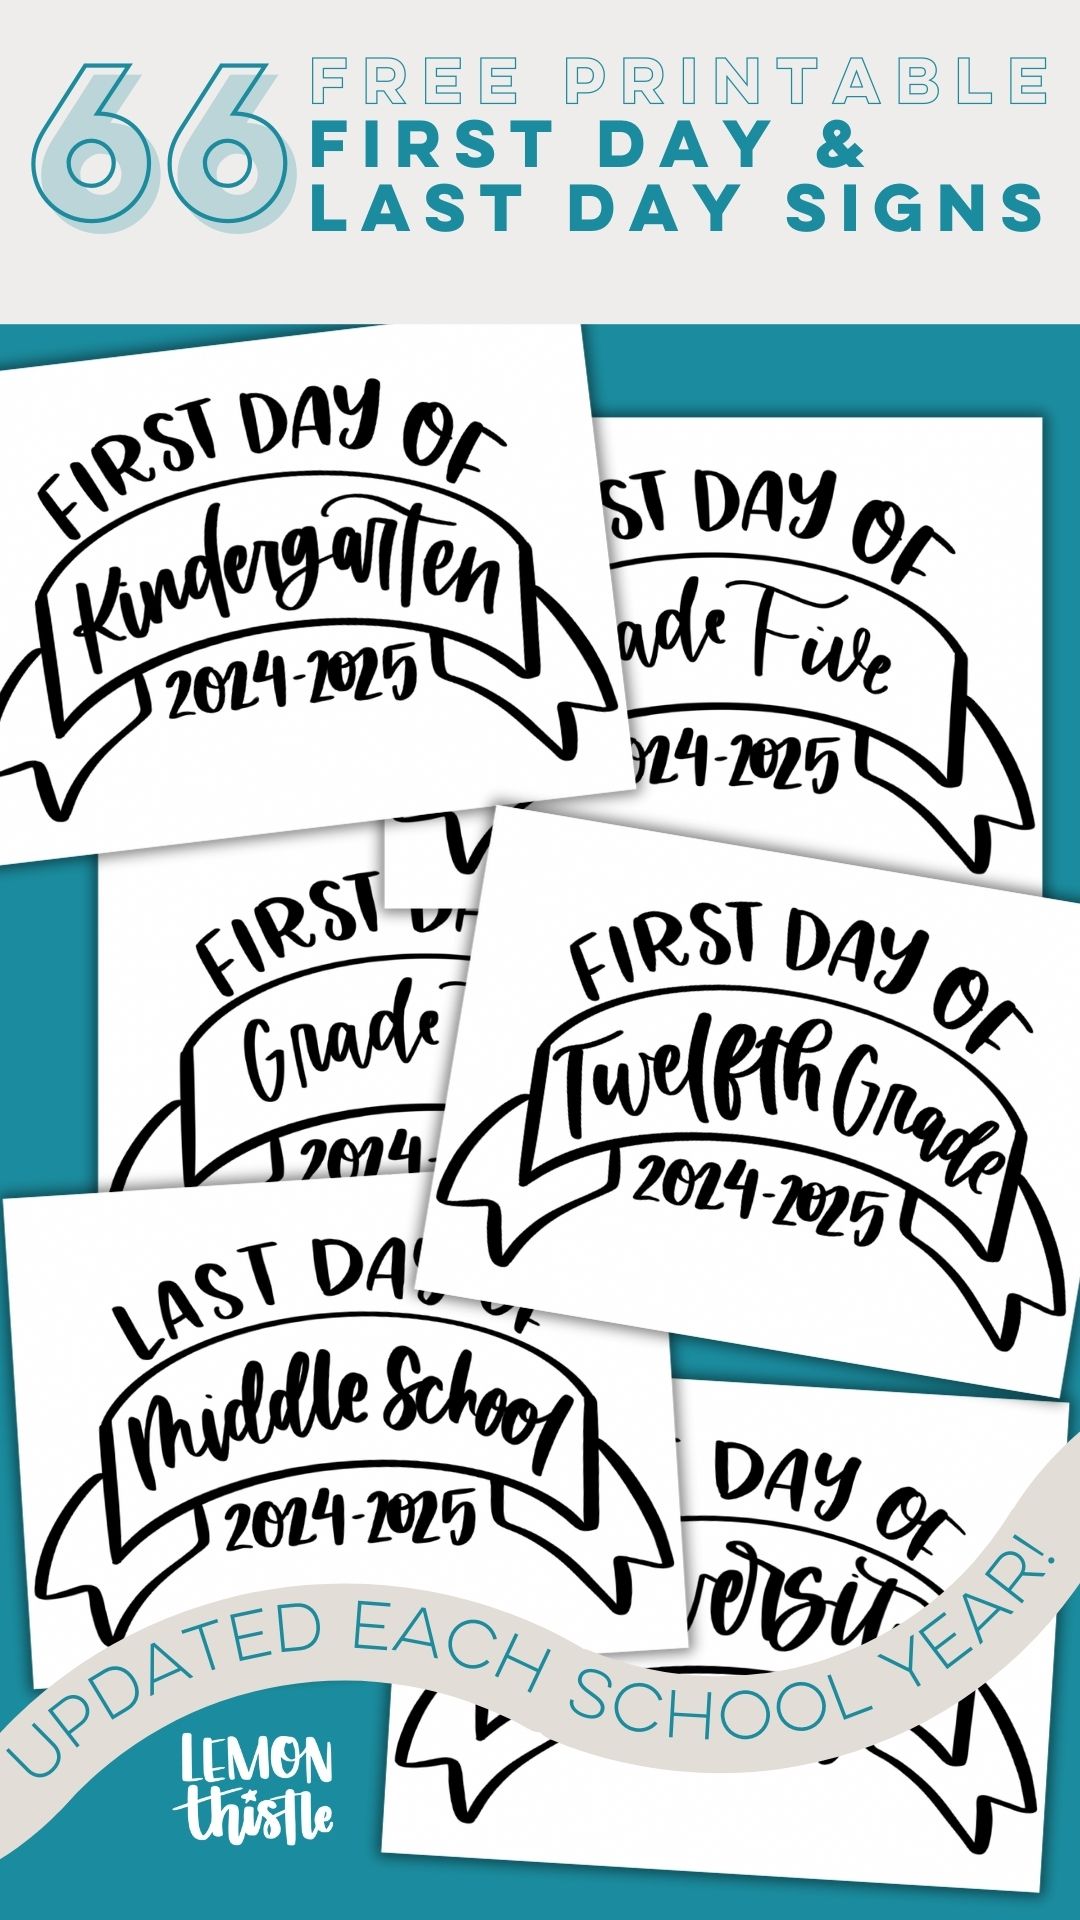 66 FREE PRINTABLE
FIRST DAY &
LAST DAY SIGNS
FIRST DAY OF
Kindergarten
2024-2025
DAY OF
Five
2024-2025
FIRST
Grade
2024-
FIRST DAY OF
Twelfth Grade
2024-2025
LAST DAY OF
Middle School
2024-2025
DAY OF
UPDATED EACH SCHOOL YEAR!
LEMON
thistle